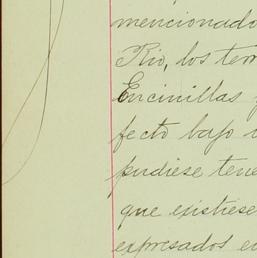 mencionado
Rio, los ter
Encinillas
fecto bajo
pudiese tene
que existiese
expresados en